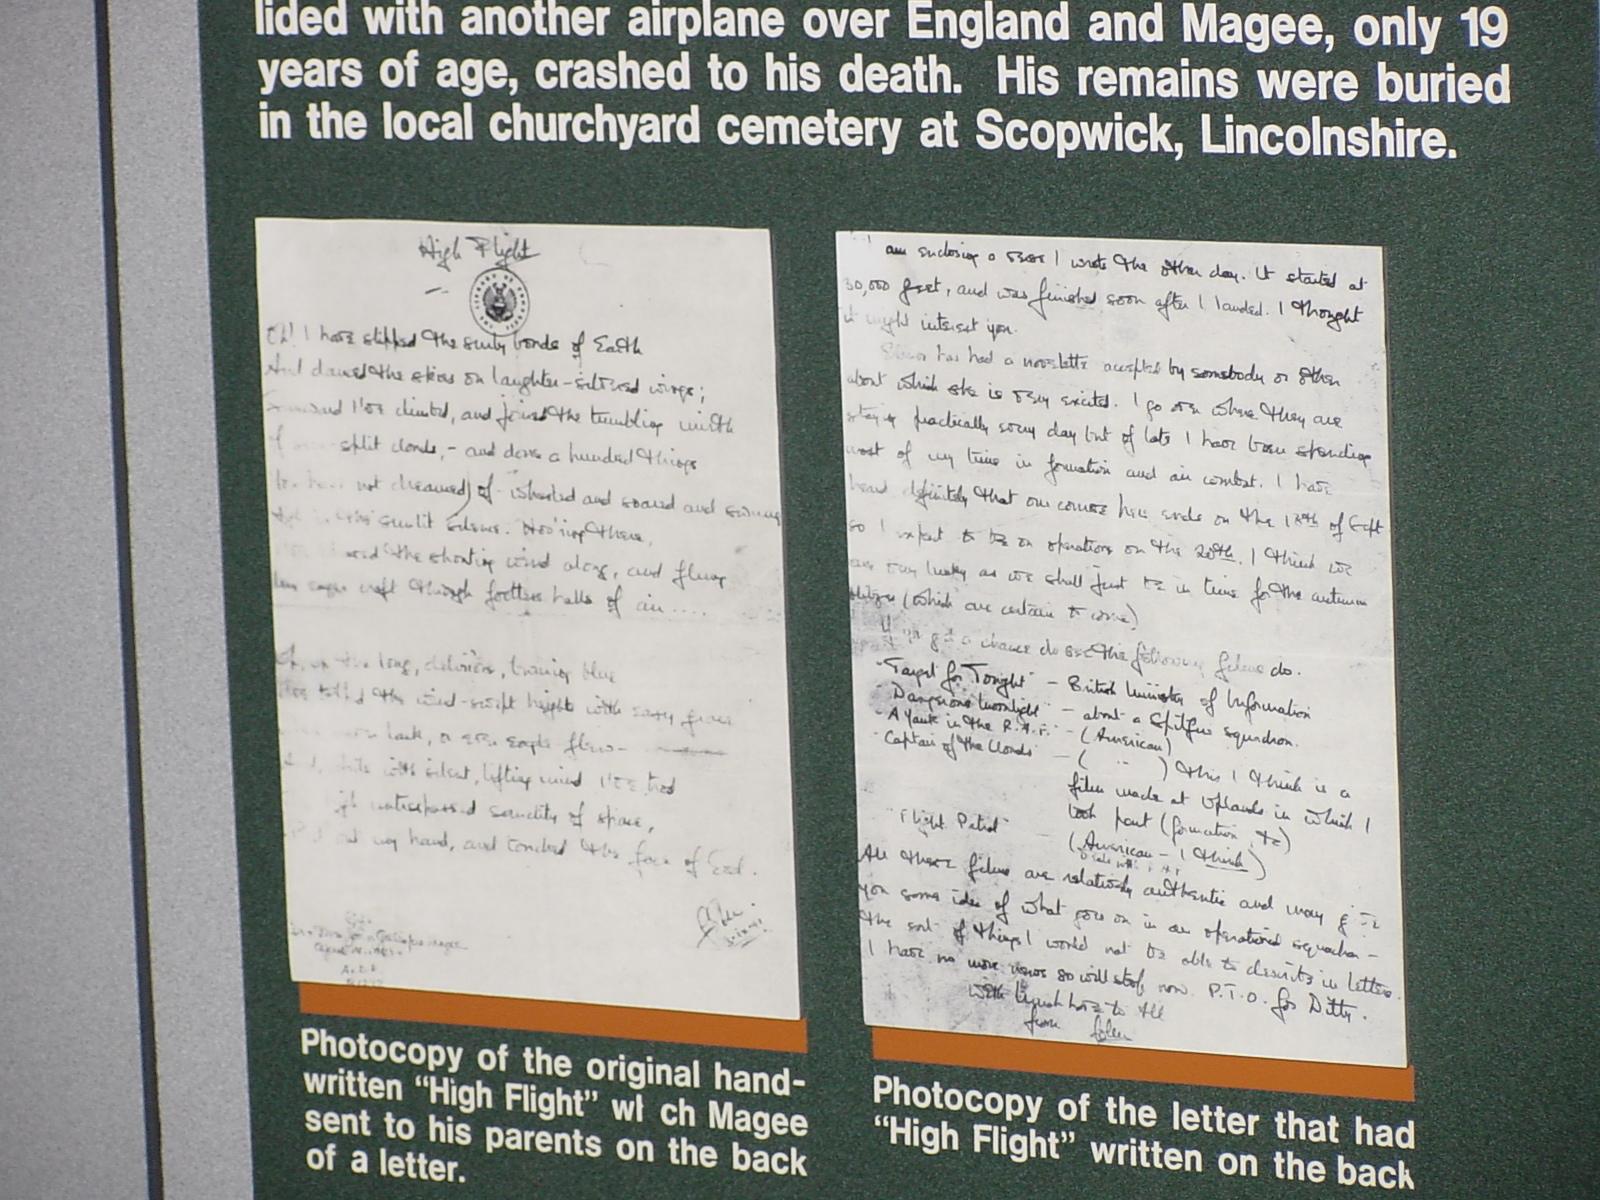 lided with another airplane over England and Magee, only 19
years of age, crashed to his death. His remains were buried
in the local churchyard cemetery at Scopwick, Lincolnshire.
High Flight
Oh! I have slipped the surly bonds of Earth
And danced the skies on laughter-silvered wings;
Sunward I've climbed, and joined the tumbling mirth
of split clouds, - and done a hundred things
not dreamed of - wheeled and soared and swung
sunlit silence. Hov'ring there,
the shouting wind along, and flung
eager craft through footless halls of air....
the long, delirious, burning blue
the wind-swept heights with easy grace
lark, or even eagle flew -
with silent, lifting mind I've trod
untrespassed sanctity of space,
out my hand, and touched the face of God.
am enclosing a verse I wrote the other day. It started at
30,000 feet, and was finished soon after I landed. I thought
it might interest you.
has had a novelette accepted by somebody or other
about which she is very excited. I go over where they are
staying practically every day but of late I have been spending
most of my time in formation and air combat. I have
heard definitely that our course here ends on the of Sept
so I expect to be on operations on the 20th. I think we
are very lucky as we shall just be in time for the autumn
blitzes (which are certain to come).
If you get a chance do see the following films do.
"Target for Tonight" - British Ministry of Information
"Dangerous Moonlight" - about a Spitfire squadron.
"A Yank in the R.A.F." - (American)
"Captain of the Clouds" - ( " ) this I think is a
film made at Uplands in which I
took part (formation etc)
"Flight Patrol" - (American - I think)
All these films are relatively authentic and may give
you some idea of what goes on in an operational squadron -
the sort of things I would not be able to describe in letters.
I have no more news so will stop now. P.T.O. for Ditty.
With much love to all
from John
Photocopy of the original hand-
written “High Flight” wl ch Magee
sent to his parents on the back
of a letter.
Photocopy of the letter that had
“High Flight” written on the back